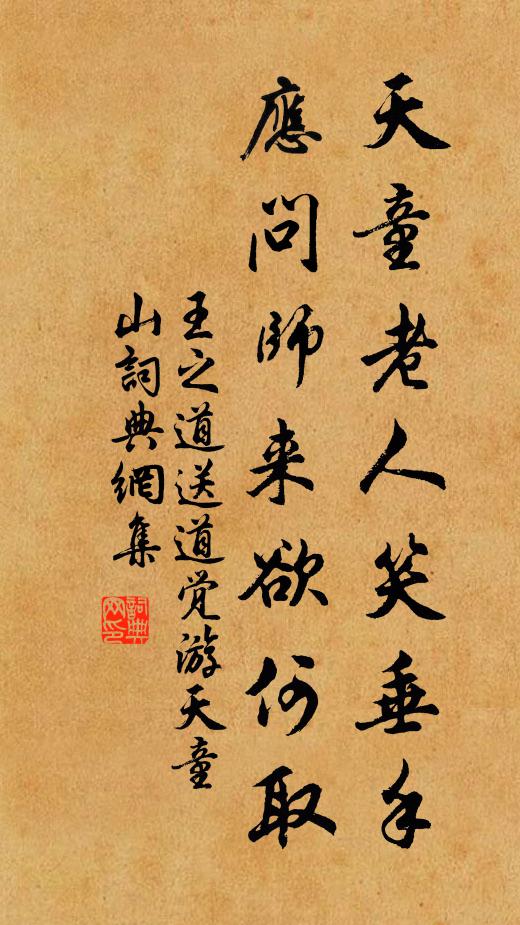 天童老人笑垂手
應問師来欲何取
王之道送道覺游天童
山詞典網集
詞典
网印